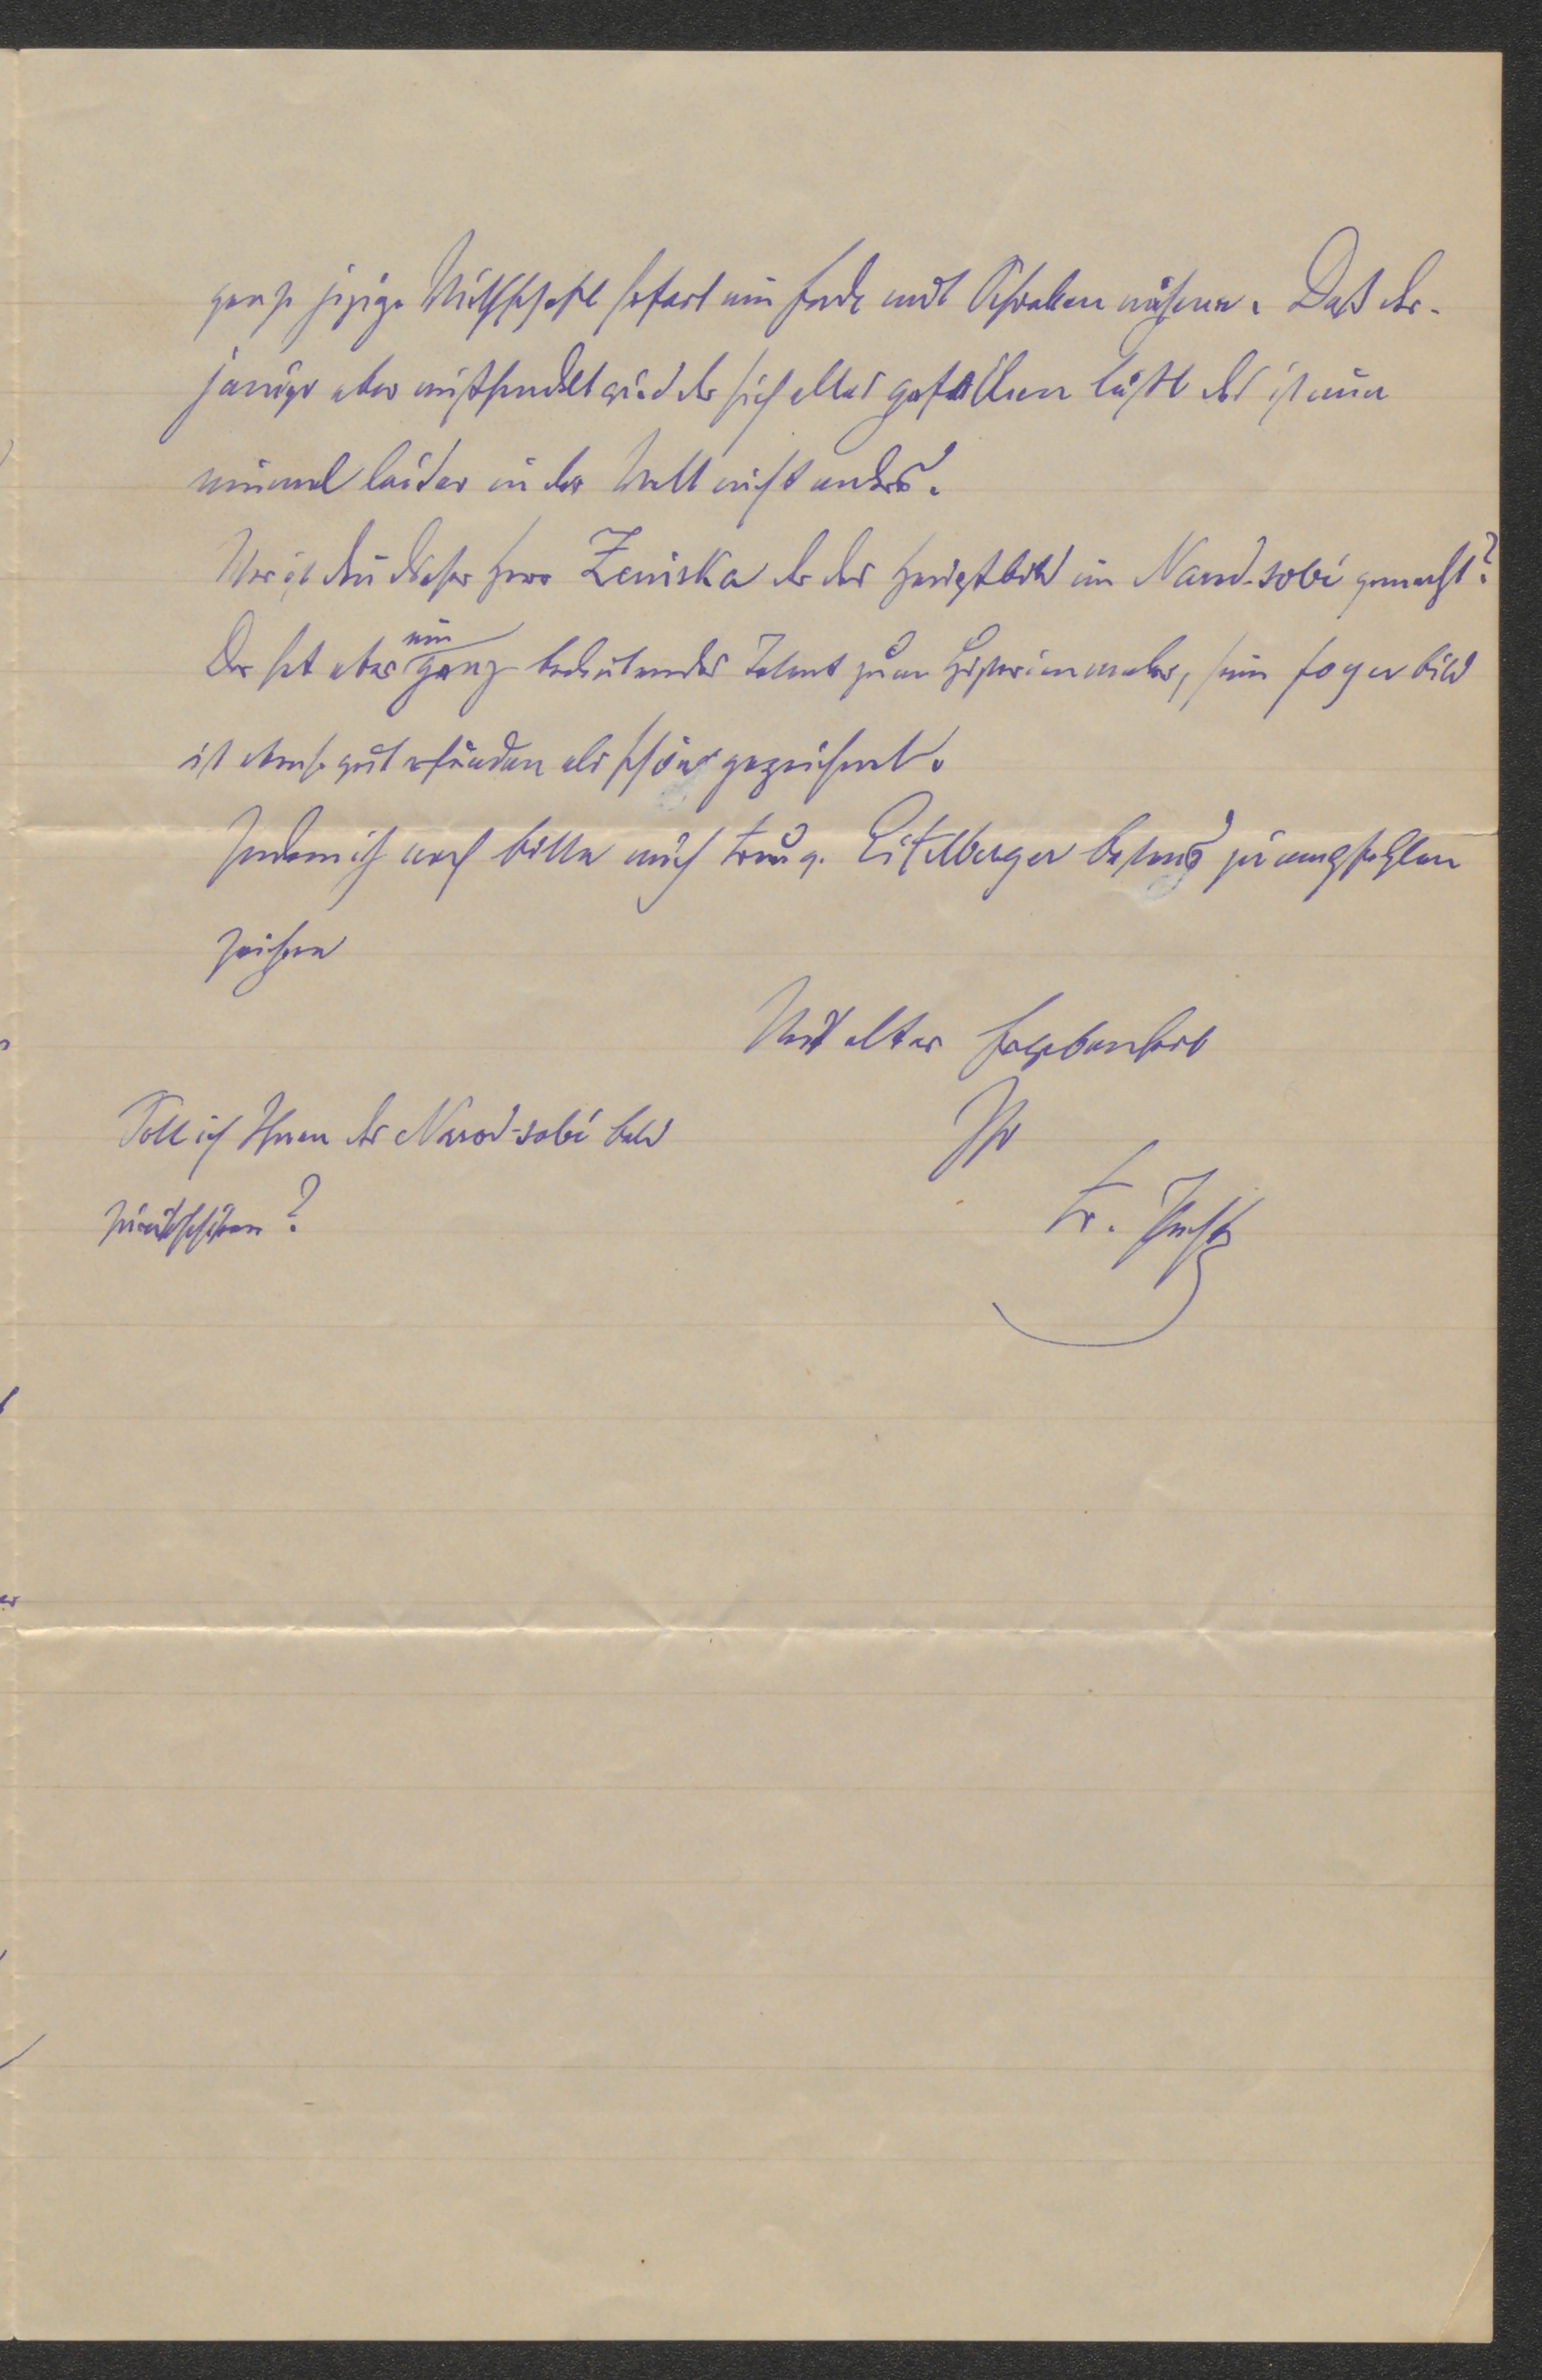 ganze jezige Wirthschaft sofort ein Ende mit Schrecken nähme. Daß der-
jenige aber mißhandelt wird der sich alles gefallen läßt das ist nun
einmal leider in der Welt nicht anders.
Wer ist den dieser Herr Zeniska der das Hauptbild im Narod-sobě gemacht?
Der hat aber ein ganz bedeutendes Talent zum Historienmaler, sein
ist ebenso gut erfunden als schön gezeichnet.
Indem ich noch bitte mich Frau v. Eitelberger bestens zu empfehlen
zeichne
Mit alter Ergebenheit
Ihr
Soll ich Ihnen das Narod-sobě bald
zurückschicken?
Fr.